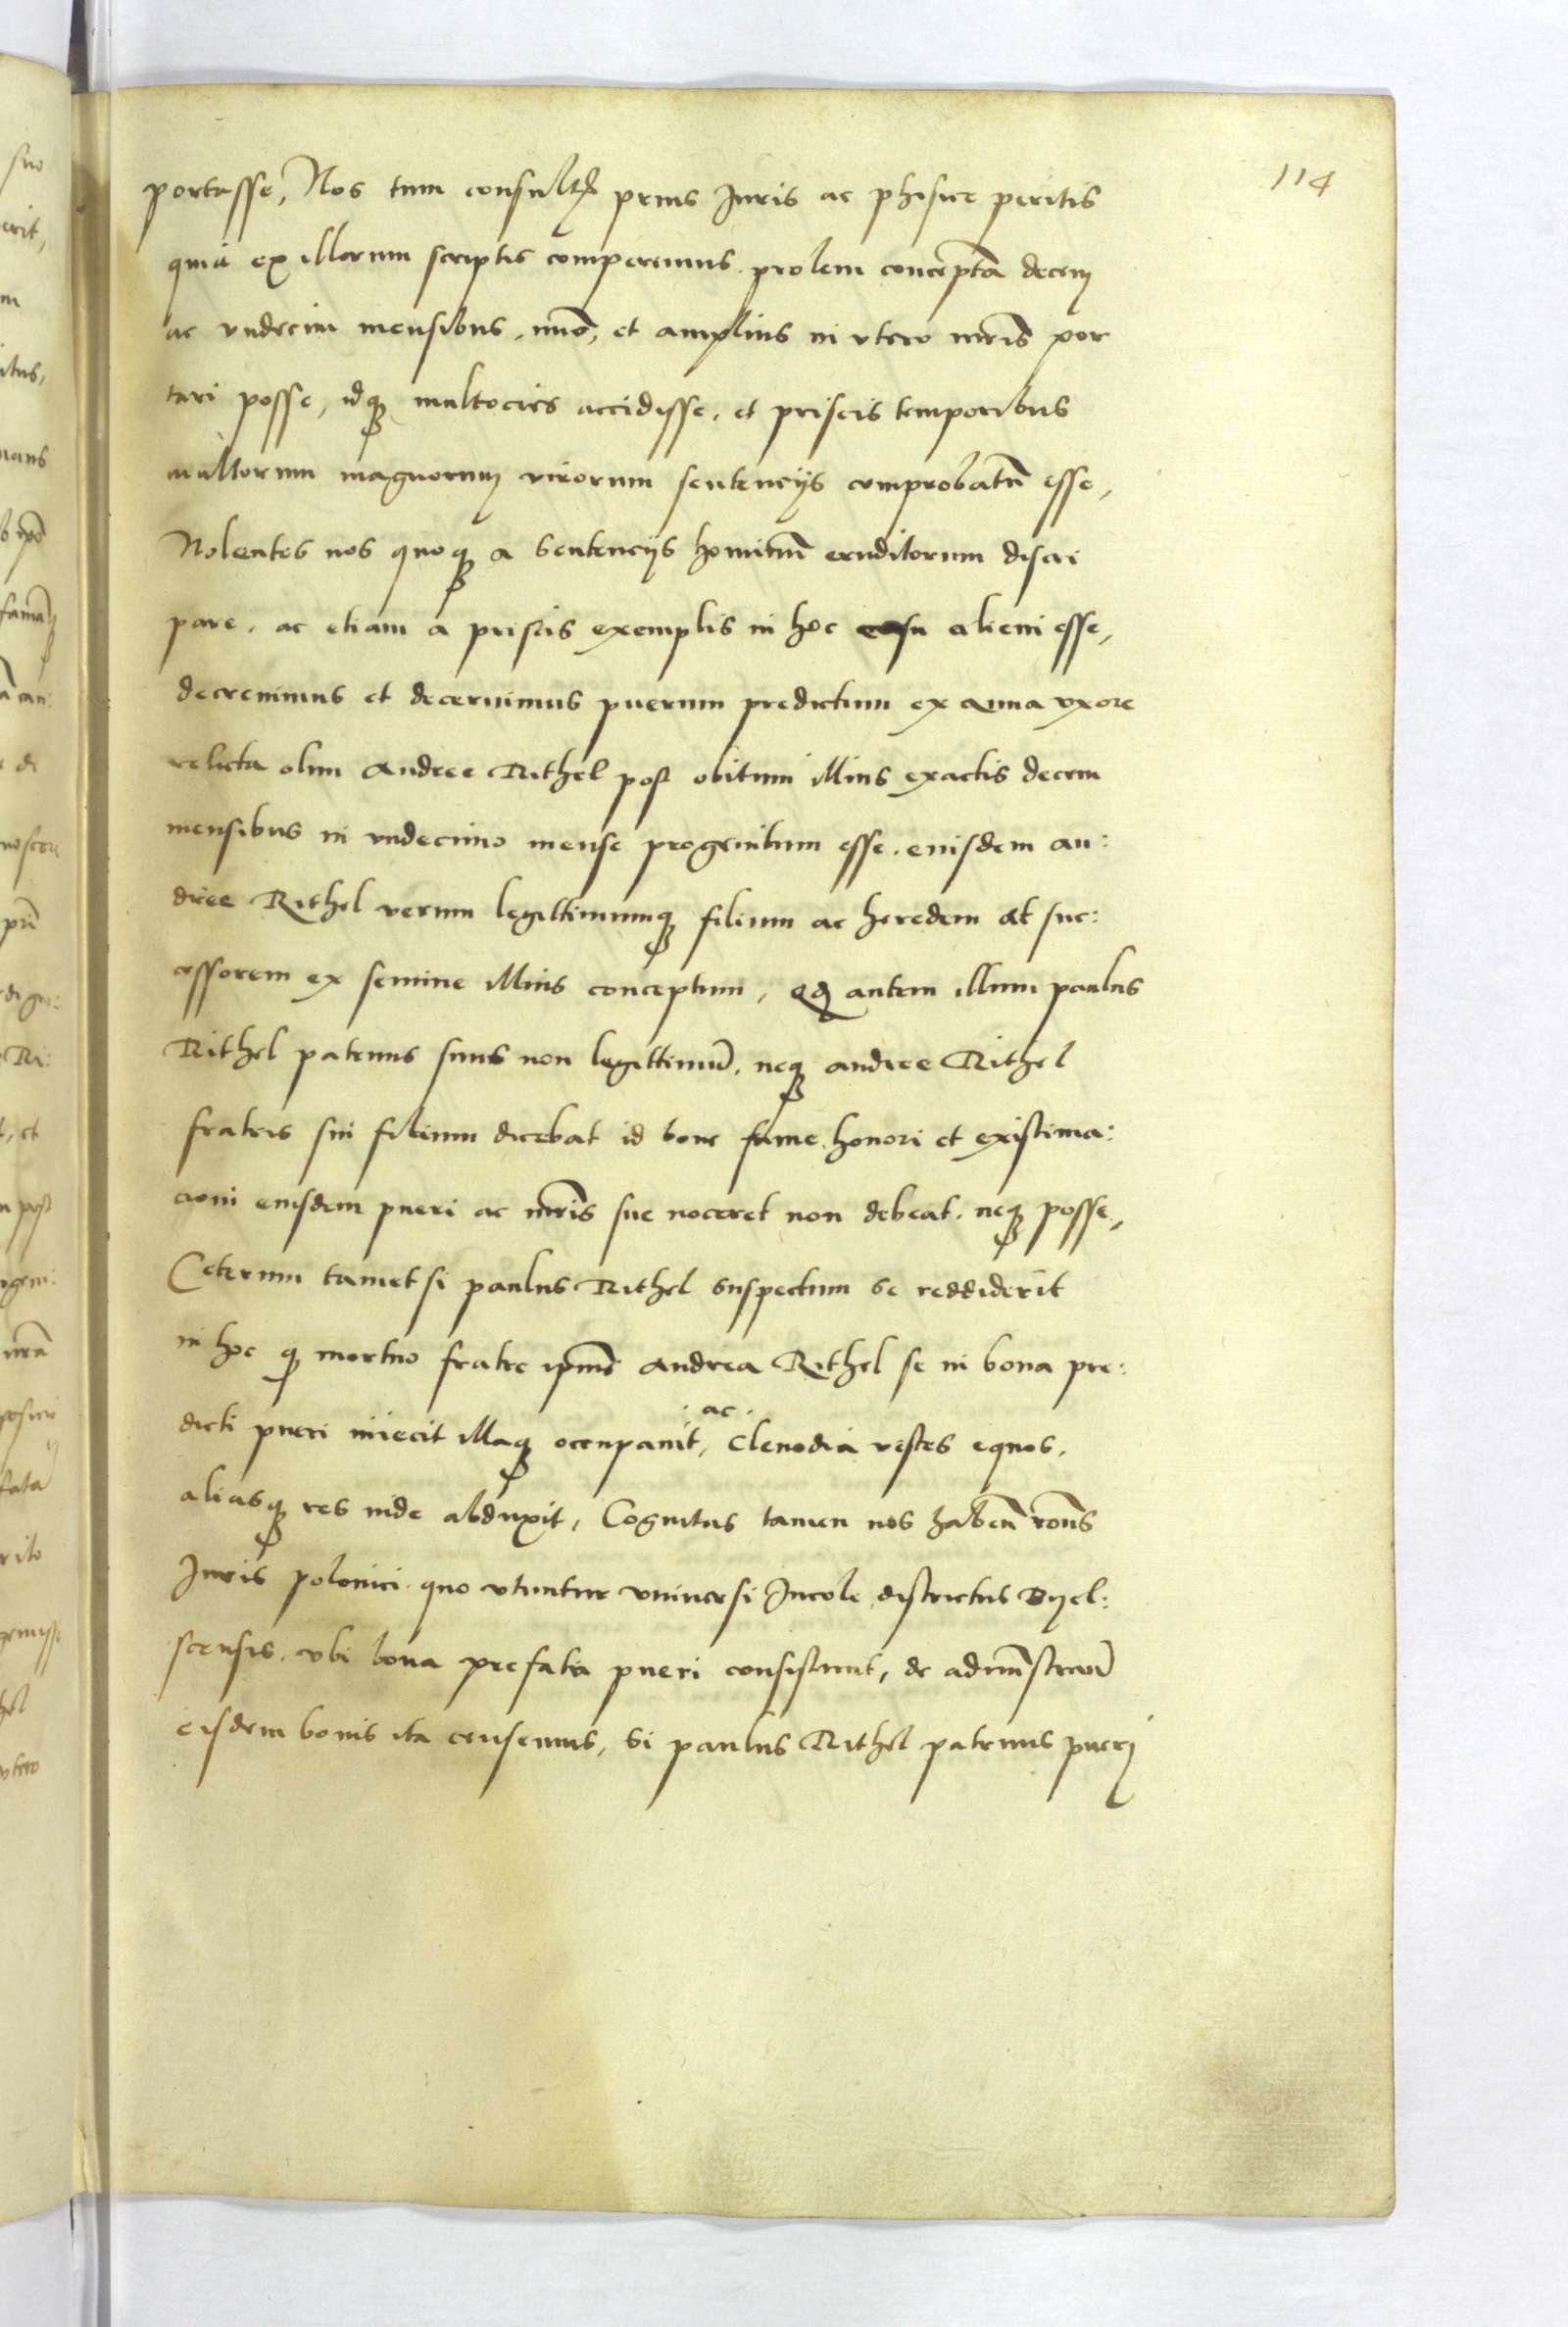 114
portasse, Nos tum consultis prius Juris ac phisice peritis
quia ex illorum scriptis comperimus prolem conceptã decem
ac vndecim mensibus, imo, et amplius in vtero mr̃is por
tari posse, idqꝫ multocies accidisse, et priscis temporibus
multorum magnorum virorum sentencijs comprobatũ esse,
Nolentes nos quoqꝫ a sentencijs hominũ eruditorum discri
pare, ac etiam a priscis exemplis in hoc casu alieni esse,
decreuimus et decernimus puerum predictum ex Anna vxore
relicta olim Andree Rithel post obitum illius exactis decem
mensibus in vndecimo mense progenitum esse, eiusdem An:
dree Rithel verum legittimumqꝫ filium ac heredem et suc:
cessorem ex semine illius conceptum, qđ autem illum paulus
Rithel patruus suus non legittimũ, neqꝫ Andree Rithel
fratris sui filium dicebat id bone fame, honori et existima:
cioni eiusdem pueri ac mr̃is sue noceret non debeat, neqꝫ posse,
Ceterum tametsi paulus Rithel suspectum se reddiderit
in hoc qꝫ mortuo fratre ipsius Andrea Rithel se in bona pre:
dicti pueri iniecit illaqꝫ occupauit, ac Clenodia vestes equos,
aliasqꝫ res inde abduxit, Cognitus tamen nos habeñ roñs
Juris polonici quo vtuntur vniuersi Incole districtus Byel:
scensis, vbi bona prefata pueri consistunt, de admĩstracõe
eisdem bonis ita censemus, Si paulus Rithel patruus puerj